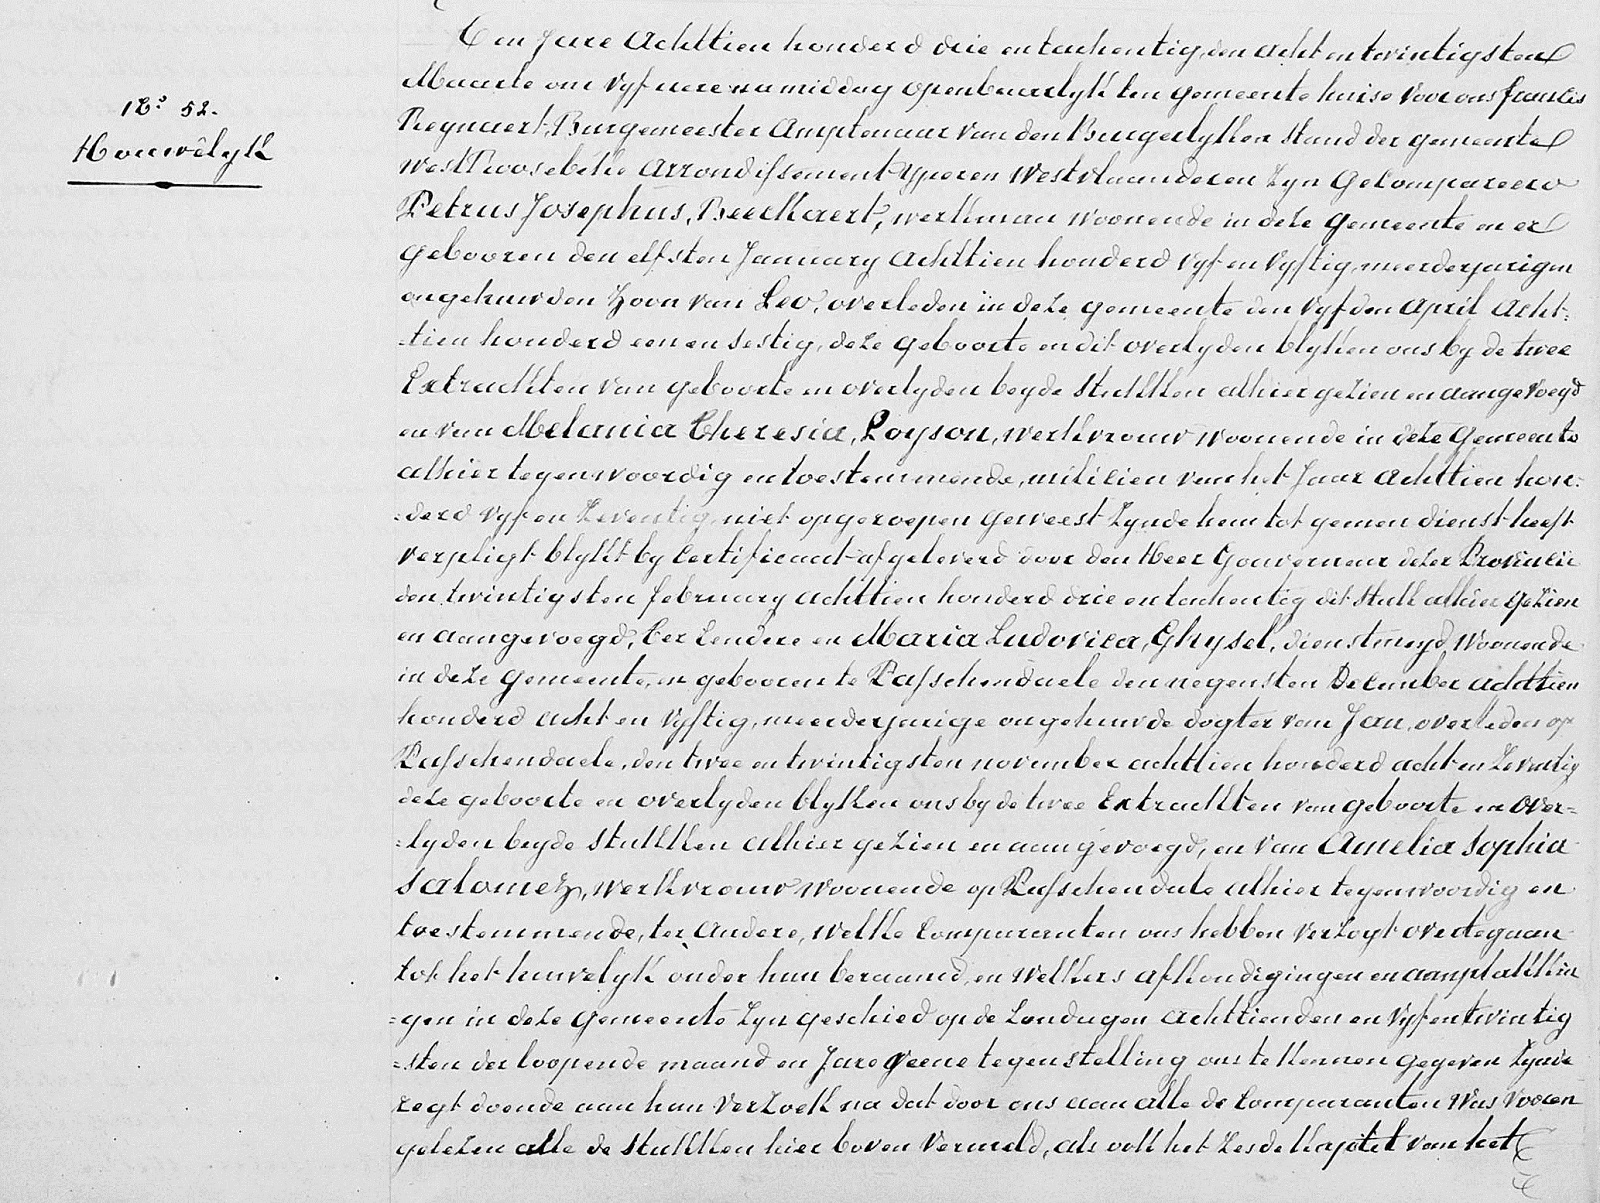 N.º 52.
Houwelyk
Ten Jare Achttien honderd drie en tachentig, den acht en twintigsten
Maarte om vyf uere namiddag openbaarlyk ten gemeente huise voor ons francis
Reynaert, Burgemeester Amptenaar van den Burgerlyken stand der gemeente
WestRoosebeke Arrondissement Yperen Westvlaanderen Zyn Gecompareerd
Petrus Josephus, Beeckaert, werkman woonende in deze gemeente en er
gebooren den elfsten January Achttien honderd vyf en vyftig, meerderjarigen
ongehuwden zoon van Leo, overleden in deze gemeente den vyfden April Acht-
-tien honderd een en sestig, deze geboorte en dit overlyden blyken ons by de twee
Extrackten van geboorte en overlyden beyde stukken alhier gezien en aangevoegd
en van Melania Theresia, Loyson, werkvrouw woonende in deze gemeente
alhier tegenwoordig en toestemmende, militien van het Jaar Achttien hon-
-derd vyf en zeventig, niet opgeroepen geweest zynde hem tot geenen dienst heeft
verpligt blykt by certificaat afgeleverd door den Heer Gouverneur dezer Provincie
den twintigsten february achttien honderd drie en tachentig dit stuk alhier gezien
en aangevoegd, ter Eendere en Maria Ludovica, Ghysel, dienstmeyd, woonende
in deze gemeente, en gebooren te Passchendaele den negensten December achttien
honderd acht en vyftig, meerderjarige ongehuwde dogter van Jan, overleden op
Passchendaele, den twee en twintigsten november achttien honderd acht en zeventig
deze geboorte en overlyden blyken ons by de twee Extrackten van geboorte en over-
-lyden beyde stukken alhier gezien en aangevoegd, en van Amelia Sophia
Salomez, werkvrouw woonende op Passchendale alhier tegenwoordig en
toestemmende, ter Andere, welke Comparanten ons hebben verzogt over te gaan
tot het huwelyk onder hun beraamd, en welkers afkondigingen en aanplakkin
-gen in deze gemeente zyn geschied op de Zondagen achttienden en vyf en twintig
-sten der loopende maand en Jare geene tegenstelling ons te kennen gegeven zynde
regt doende aan hun verzoek na dat door ons aan alle de Comparanten was vooren
gelezen alle de stukken hier boven vermeld, als ook het zesde kapitel van het